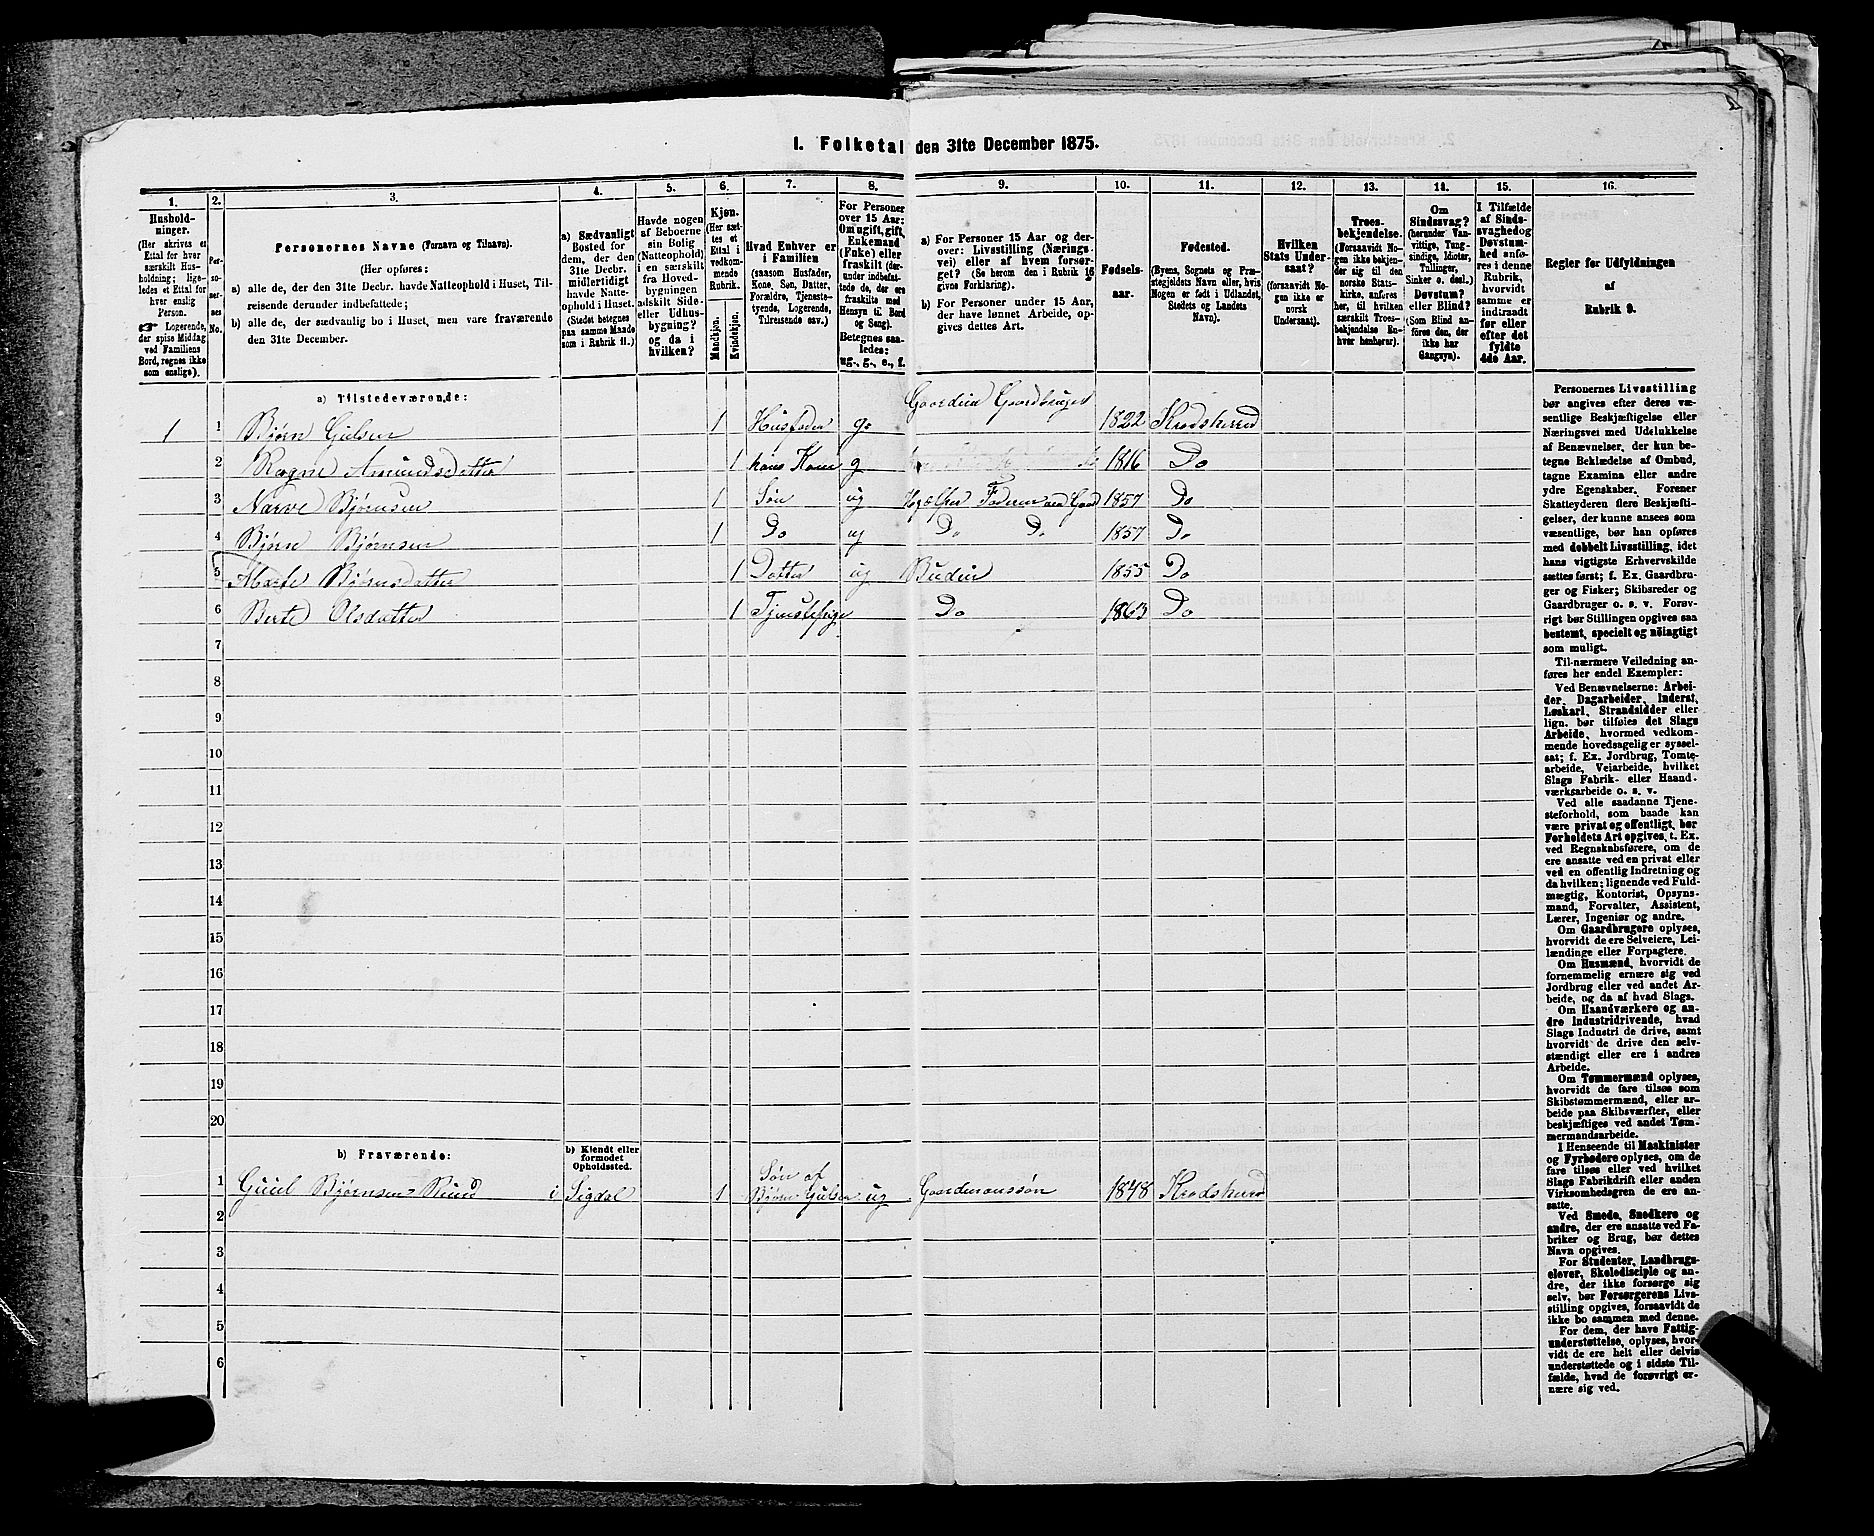 1. Folketal den 31te December 1875.
1.
Hushold-
ninger.
(Her skrives et
Ettal for hver
særskilt Hus-
holdning; lige-
ledes et Ettal for
hver enslig
Person.
☞ Logerende,
der spise Middag
ved Familiens
Bord, regnes ikke
som enslige).
2.
Per-
so-
ner-
nes
No.
3.
Personernes Navne (Fornavn og Tilnavn).
(Her opføres:
a) alle de, der den 31te Decbr. havde Natteophold i Huset, Til-
reisende derunder indbefattede;
b) alle de, der sædvanlig bo i Huset, men vare fraværende
den 31te December.
4.
a) Sædvanligt
Bosted for
dem, der den
31te Decbr.
midlertidigt
havde Natte-
ophold i Huset.
(Stedet betegnes
paa samme Maade
som i Rubrik 11.)
5.
Havde nogen
af Beboerne
sin Bolig
(Natteophold)
i en særskilt
fra Hoved-
bygningen
adskilt Side-
eller Udhus-
bygning?
og da i
hvilken?
6.
Kjøn.
(Her sæt-
tes et
Ettal i
vedkom-
mende
Rubrik.
Mandkjøn.
Kvindekjøn.
7.
Hvad Enhver er
i Familien
(saasom Husfader,
Kone, Søn, Datter,
Forældre, Tjeneste-
tyende, Logerende,
Tilreisende osv.)
8.
For Personer
over 15 Aar:
Om ugift, gift,
Enkemand
(Enke) eller
fraskilt (der-
under indbefat-
tede de, der ere
fraskilte med
Hensyn til Bord
og Seng).
Betegnes saa-
ledes:
ug., g., e., f.
9.
a) For Personer 15 Aar og der-
over: Livsstilling (Nærings-
vei) eller af hvem forsør-
get? (Se herom den i Rubrik 16
givne Forklaring).
b) For Personer under 15 Aar,
der have lønnet Arbeide, op-
gives dettes Art.
10.
Fødsels-
aar.
11.
Fødested.
(Byens, Sognets og Præ-
stegjeldets Navn eller, hvis
Nogen er født i Udlandet,
Stedets og Landets
Navn).
12.
Hvilken
Stats Under-
saat?
(forsaavidt No-
gen ikke er
norsk
Undersaat).
13.
Troes-
bekjendelse.
(Forsaavidt No-
gen ikke bekjen-
der sig til den
norske Stats-
kirke, anføres
her, til hvilken
særskilt Troes-
bekjendelse En-
hver henhører).
14.
Om
Sindssvag?
(herunder Van-
vittige, Tung-
sindige, Idioter,
Tullinger,
Sinker o. desl.)
Døvstum?
eller Blind?
(Som Blind an-
føres den, der
ikke har
Gangsyn).
15.
I Tilfælde
af Sinds-
svaghed og
Døvstum-
hed anfø-
res i denne
Rubrik,
hvorvidt
samme er
indtraadt
før eller
efter det
fyldte
4de Aar.
16.
Regler for Udfyldningen
af
Rubrik 9.
a) Tilstedeværende:
1 1 Bjørn Gulsen 1 Husfader g. Gaardeier Gaardbruger 1822 Krødsherred
2 Ragne Amundsdatter 1 hans Kone g 1816 Do
3 Narve Bjørnsen 1 Søn ug Hjælper Faderen ved Gaard 1857 Do
4 Bjørn Bjørnsen 1 Do ug Do Do 1857 Do
5 Marte Bjørnsdatter 1 Datter ug Budeie 1855 Do
6 Berte Olsdatter 1 Tjenestepige Do 1863 Do
7
8
9
10
11
12
13
14
15
16
17
18
19
20
b) Fraværende:
b) Kjendt eller
formodet
Opholdssted.
1 Guul Bjørnsen Ruud i Sigdal 1 Søn af Bjørn Gulsen ug Gaardmanssøn 1848 Krødsherred
2
3
4
5
6
Personernes Livsstilling
bør angives efter deres væ-
sentlige Beskjæftigelse eller
Næringsvei med Udelukkelse
af Benævnelser, der kun be-
tegne Beklædelse af Ombud,
tagne Examina eller andre
ydre Egenskaber. Forener
Skatteyderen flere Beskjæfti-
gelser, der kunne ansees som
væsentlige, bør han opføres
med dobbelt Livsstilling, idet
hans vigtigste Erhvervskilde
sættes først; f. Ex. Gaardbru-
ger og Fisker; Skibsreder og
Gaardbruger o. s. v. Forøv-
rigt bør Stillingen opgives saa
bestemt, specielt og nöiagtigt
som muligt.
Til nærmere Veiledning an-
føres her endel Exempler:
Ved Benævnelserne: Arbei-
der, Dagarbeider, Inderst,
Løskarl, Strandsidder eller
lign. bør tilføies det Slags
Arbeide, hvormed vedkom-
mende hovedsagelig er syssel-
sat; f. Ex. Jordbrug, Tomte-
arbeide, Veiarbeide, hvilket
Slags Fabrik- eller Haand-
værksarbeide o. s. v.
Ved alle saadanne Tjene-
steforhold, som baade kan
være privat og offentligt, bør
Forholdets Art opgives, t. Ex.
ved Regnskabsførere, om de
ere ansatte ved en privat eller
ved en offentlig Indretning og
da hvilken; lignende ved Fuld-
mægtig, Kontorist, Opsyns-
mand, Forvalter, Assistent,
Lærer, Ingeniør og andre.
Om Gaardbrugere oplyses,
hvorvidt de ere Selveiere, Lei-
lændinge eller Forpagtere.
Om Husmænd, hvorvidt de
fornemmelig ernære sig ved
Jordbrug eller ved andet Ar-
beide, og da af hvad Slags.
Om Haandværkere og an-
dre Industridrivende, hvad
Slags Industri de drive, samt
hvorvidt de drive den selv-
stændigt eller ere i andres
Arbeide.
Om Tømmermænd oplyses,
hvorvidt de fare tilsøs som
Skibstømmermænd, eller ar-
beide paa Skibsværfter, eller
beskjæftiges ved andet Tøm-
mermandsarbeide.
I Henseende til Maskinister
og Fyrbødere oplyses, om de
fare tilsøs eller ved hvilket
Slags Fabrikdrift eller anden
Virksomhedsgren de ere an-
satte.
Ved Smede, Snedkere og
andre, der ere ansatte ved Fa-
briker og Brug, bør dettes
Navn opgives.
For Studenter, Landbrugs-
elever, Skoledisciple og an-
dre, der ikke forsørge sig
selv, bør Forsørgerens Livs-
stilling opgives, forsaavidt de
ikke bo sammen med denne.
For dem, der have Fattig-
understøttelse, oplyses, hvor-
vidt de ere helt eller delvis
understøttede og i sidste Til-
fælde, hvad de forøvrigt er-
nære sig ved.